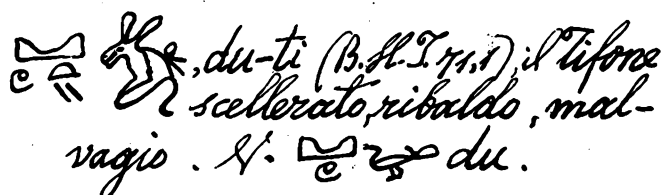 , du-ti (B. H. I. 71,1), il Tifone
scellerato, ribaldo, mal-
vagio. V. du.